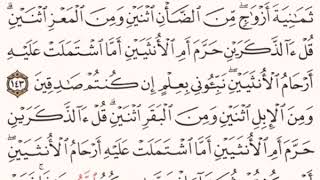 ثَمَٰنِيَةَ أَزْوَٰجٍ ۖ مِّنَ ٱلضَّأْنِ ٱثْنَيْنِ وَمِنَ ٱلْمَعْزِ ٱثْنَيْنِ ۗ
قُلْ ءَآلذَّكَرَيْنِ حَرَّمَ أَمِ ٱلْأُنثَيَيْنِ أَمَّا ٱشْتَمَلَتْ عَلَيْهِ
أَرْحَامُ ٱلْأُنثَيَيْنِ ۖ نَبِّـُٔونِى بِعِلْمٍ إِن كُنتُمْ صَٰدِقِينَ ١٤٣
وَمِنَ ٱلْإِبِلِ ٱثْنَيْنِ وَمِنَ ٱلْبَقَرِ ٱثْنَيْنِ ۗ قُلْ ءَآلذَّكَرَيْنِ
حَرَّمَ أَمِ ٱلْأُنثَيَيْنِ أَمَّا ٱشْتَمَلَتْ عَلَيْهِ أَرْحَامُ ٱلْأُنثَيَيْنِ ۖ